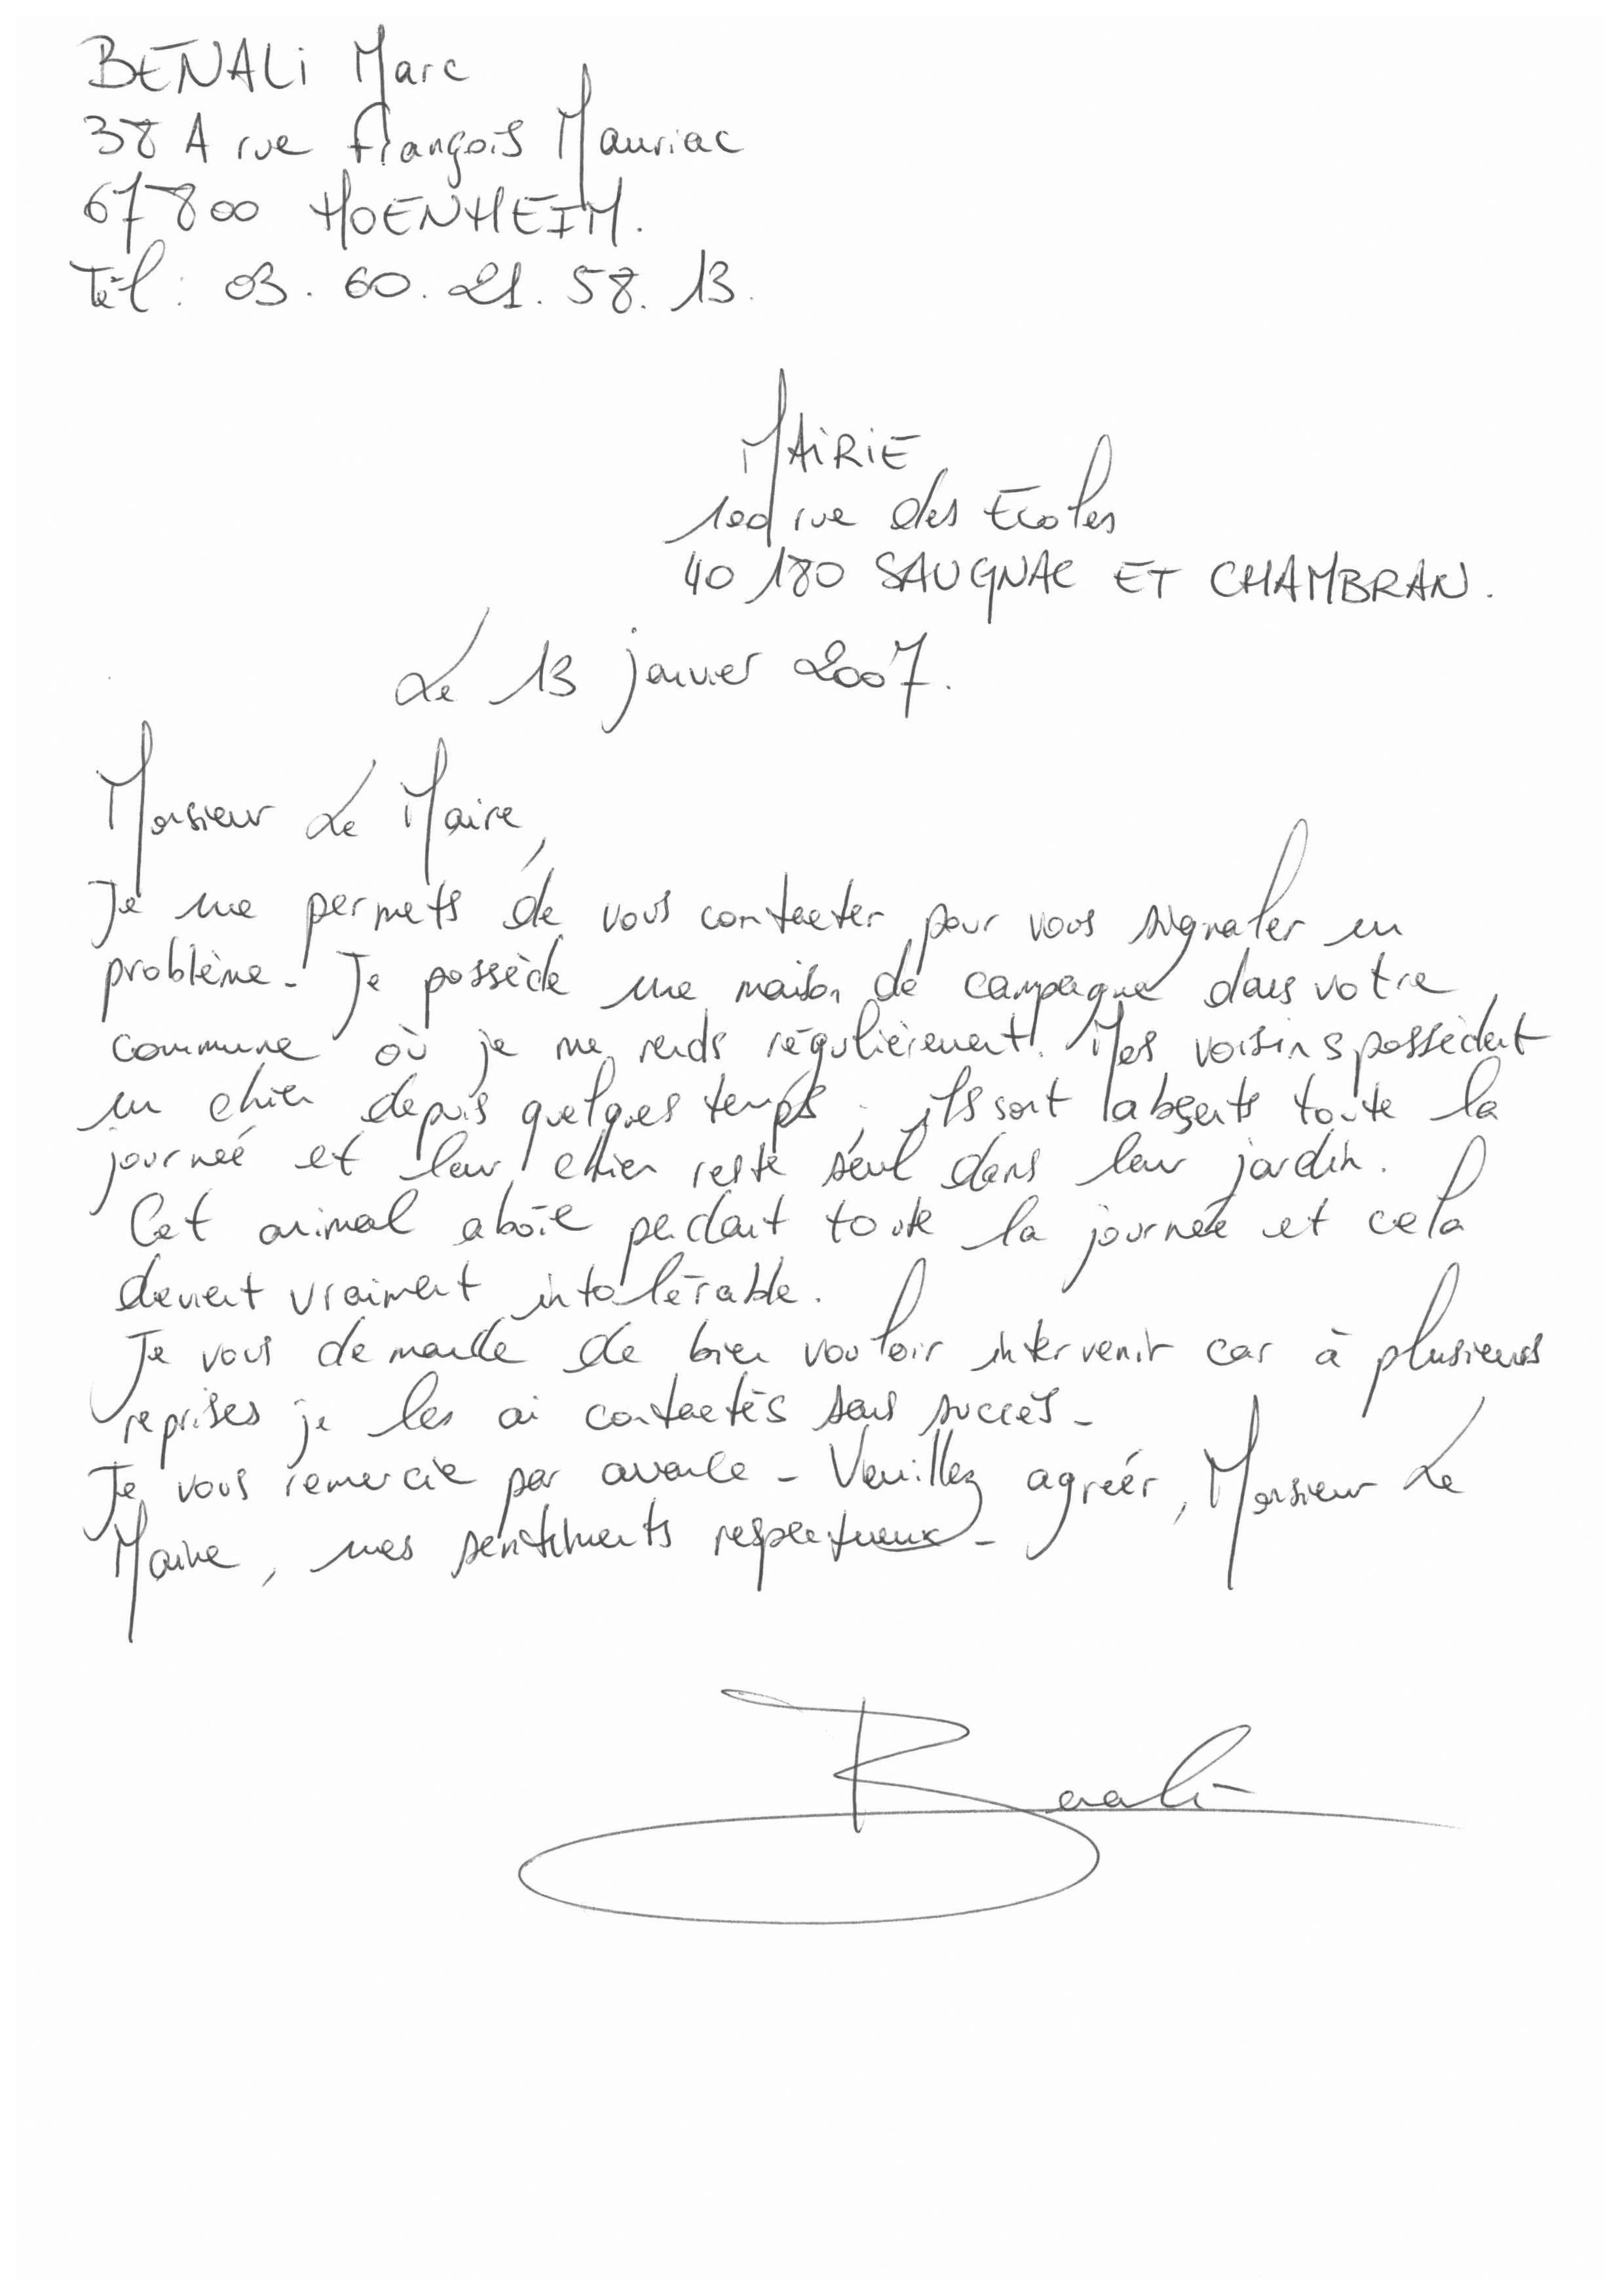 BENALI Marc
38 A rue François Mauriac
67800 HOENHEIM.
Tél : 03. 60. 21. 58. 13.
MAIRIE
100 rue des Ecoles
40 180 SAUGNAC ET CHAMBRAN.
Le 13 janvier 2007.
Monsieur Le Maire,
Je me permets de vous contacter pour vous signaler un
problème. Je possède une maison de campagne dans votre
commune où je me rends régulièrement. Mes voisins possèdent
un chien depuis quelques temps ; ils sont absents toute la
journée et leur chien reste seul dans leur jardin.
Cet animal aboie pendant toute la journée et cela
devient vraiment intolérable.
Je vous demande de bien vouloir intervenir car à plusieurs
reprises je les ai contactés sans succès.
Je vous remercie par avance. Veuillez agréér, Monsieur Le
Maire, mes sentiments respectueux.
Benali